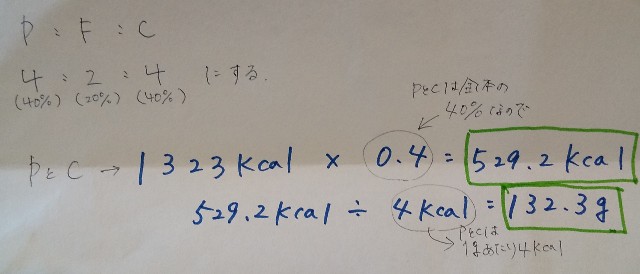 P : F : C
4 : 2 : 4 にする.
(40%) (20%) (40%)
PとCは全体の
40%なので
PとC → 1323kcal × 0.4 = 529.2kcal
529.2kcal ÷ 4kcal = 132.3g
PとCは
1gあたり4kcal